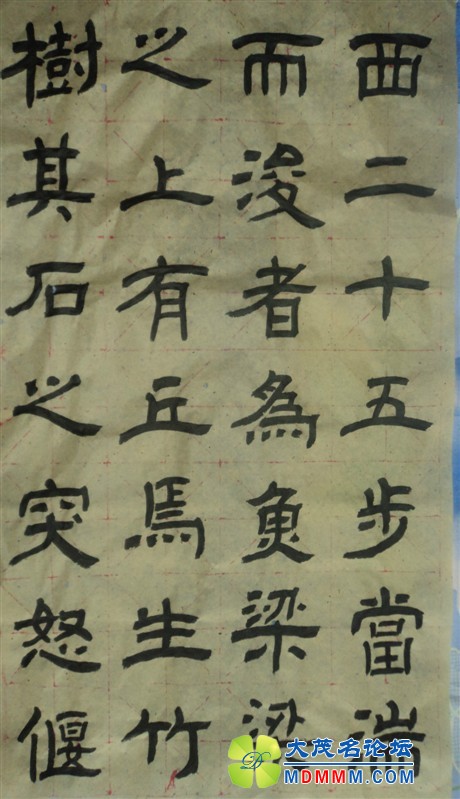 西二十五步當湍
而浚者為魚梁梁
之上有丘焉生竹
樹其石之突怒偃
大茂名论坛
MDMMM.COM